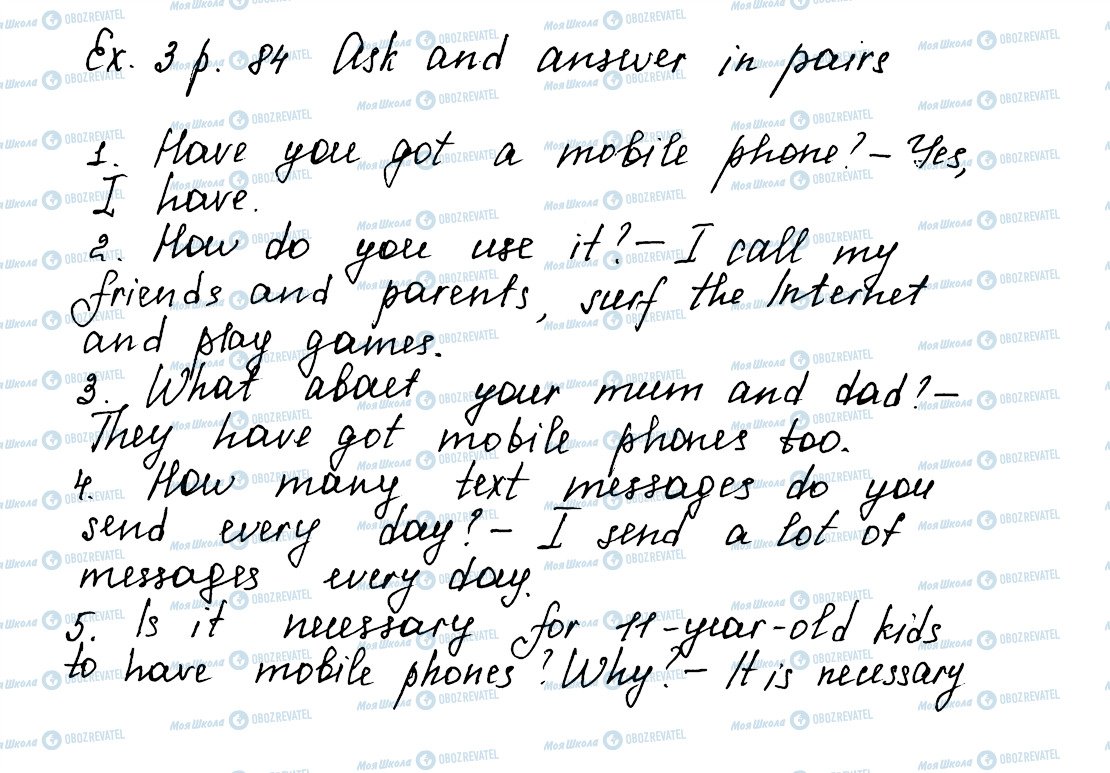 Ex. 3 p. 84 Ask and answer in pairs
1. Have you got a mobile phone? – Yes,
I have.
2. How do you use it? – I call my
friends and parents, surf the Internet
and play games.
3. What about your mum and dad? –
They have got mobile phones too.
4. How many text messages do you
send every day? – I send a lot of
messages every day.
5. Is it necessary for 11-year-old kids
to have mobile phones? Why? – It is necessary